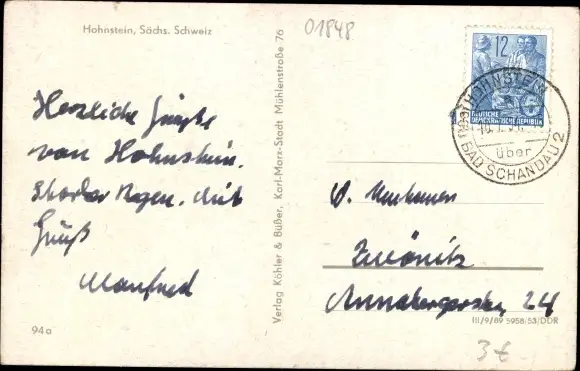 Hohnstein, Sächs. Schweiz
01848
Herzliche Grüße
von Hohnstein.
Starker Regen. Mit
Gruß
Manfred
94a
Verlag Köhler & Büßer, Karl-Marx-Stadt Mühlenstraße 76
12
DEUTSCHE
DEMOKRATISCHE REPUBLIK
HOHNSTEIN
über
BAD SCHANDAU 2
Zwönitz
Annabergerstr. 24
III/9/89 5958/53/DDR
3€